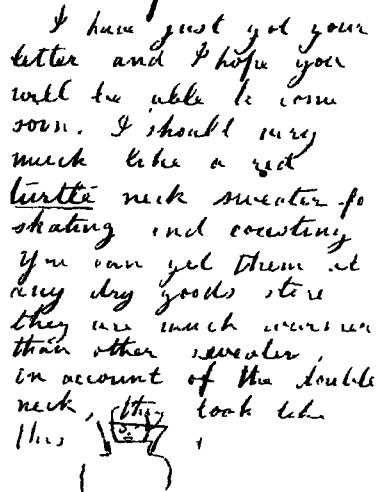 I have just got your
letter and I hope you
will be able to come
soon. I should very
much like a red
turtle neck sweater fo
skating and coasting
You can get them at
any dry goods store
they are much warmer
than other sweater,
on account of the double
neck, they look like
this